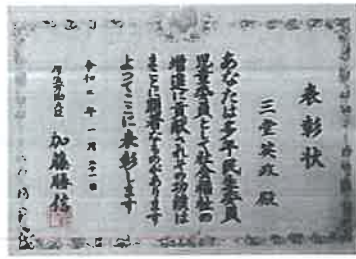 表彰状
三堂英政 殿
あなたは多年民生委員
児童委員として社会福祉の
増進に貢献されその功績は
まことに顕著なものがあります
よってここに表彰します
令和三年一月二十一日
厚生労働大臣 加藤勝信